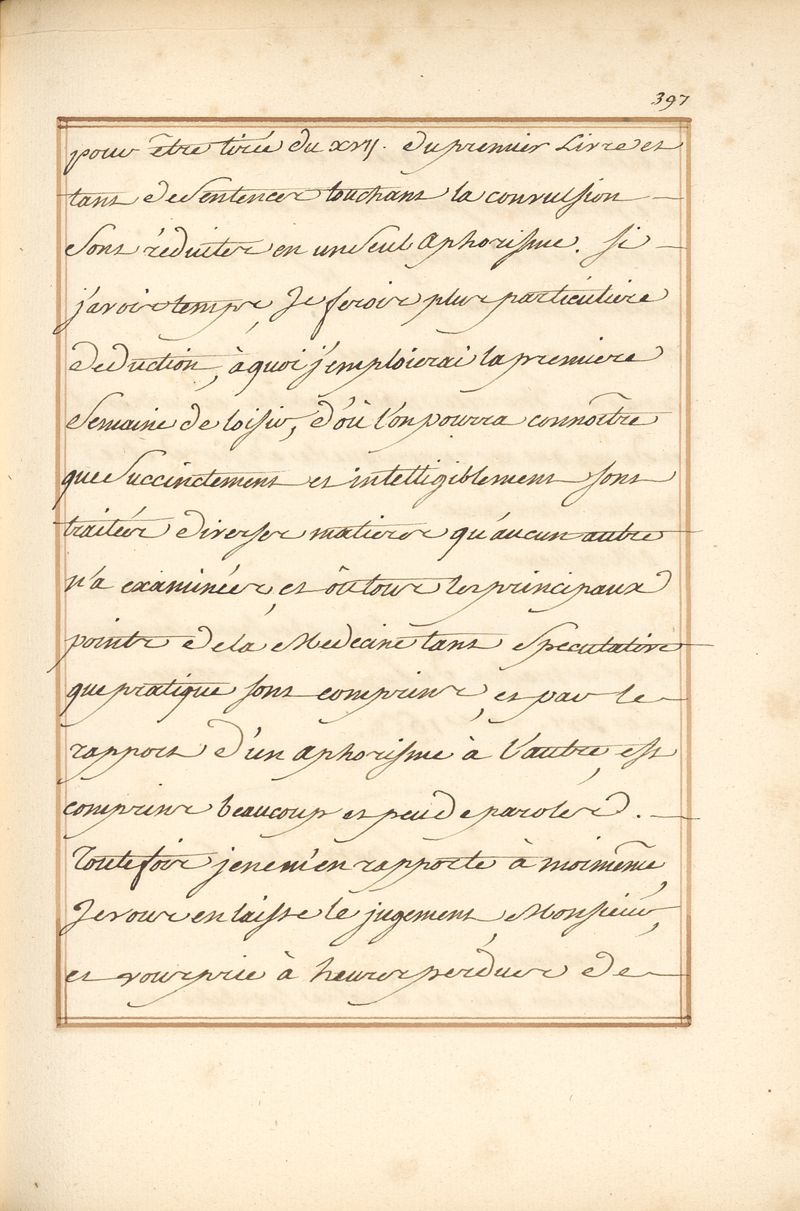 397
pour être tirée du xvij. du premier Livre et
tant de Sentences touchant la convulsion
Sont réduites en un Seul Aphorisme. Si
j'avois temps, Je ferois plus particuliere
deduction, à quoi j'emploierai la premiere
Semaine de loisir, d'où l'on pourra connoître
que Succinctement et intelligiblement sont
traitées diverses matieres qu'aucun autre
n'a examinées, et où tous les principaux
points de la Medecine tant Speculative
que pratique sont comprins, et par le
rapport d'un aphorisme à l'autre, est
comprins beaucoup et peu de paroles.
Toutefois je ne m'en rapporte à moi même,
Je vous en laisse le jugement, Monsieur,
et vous prie à heures perdues de